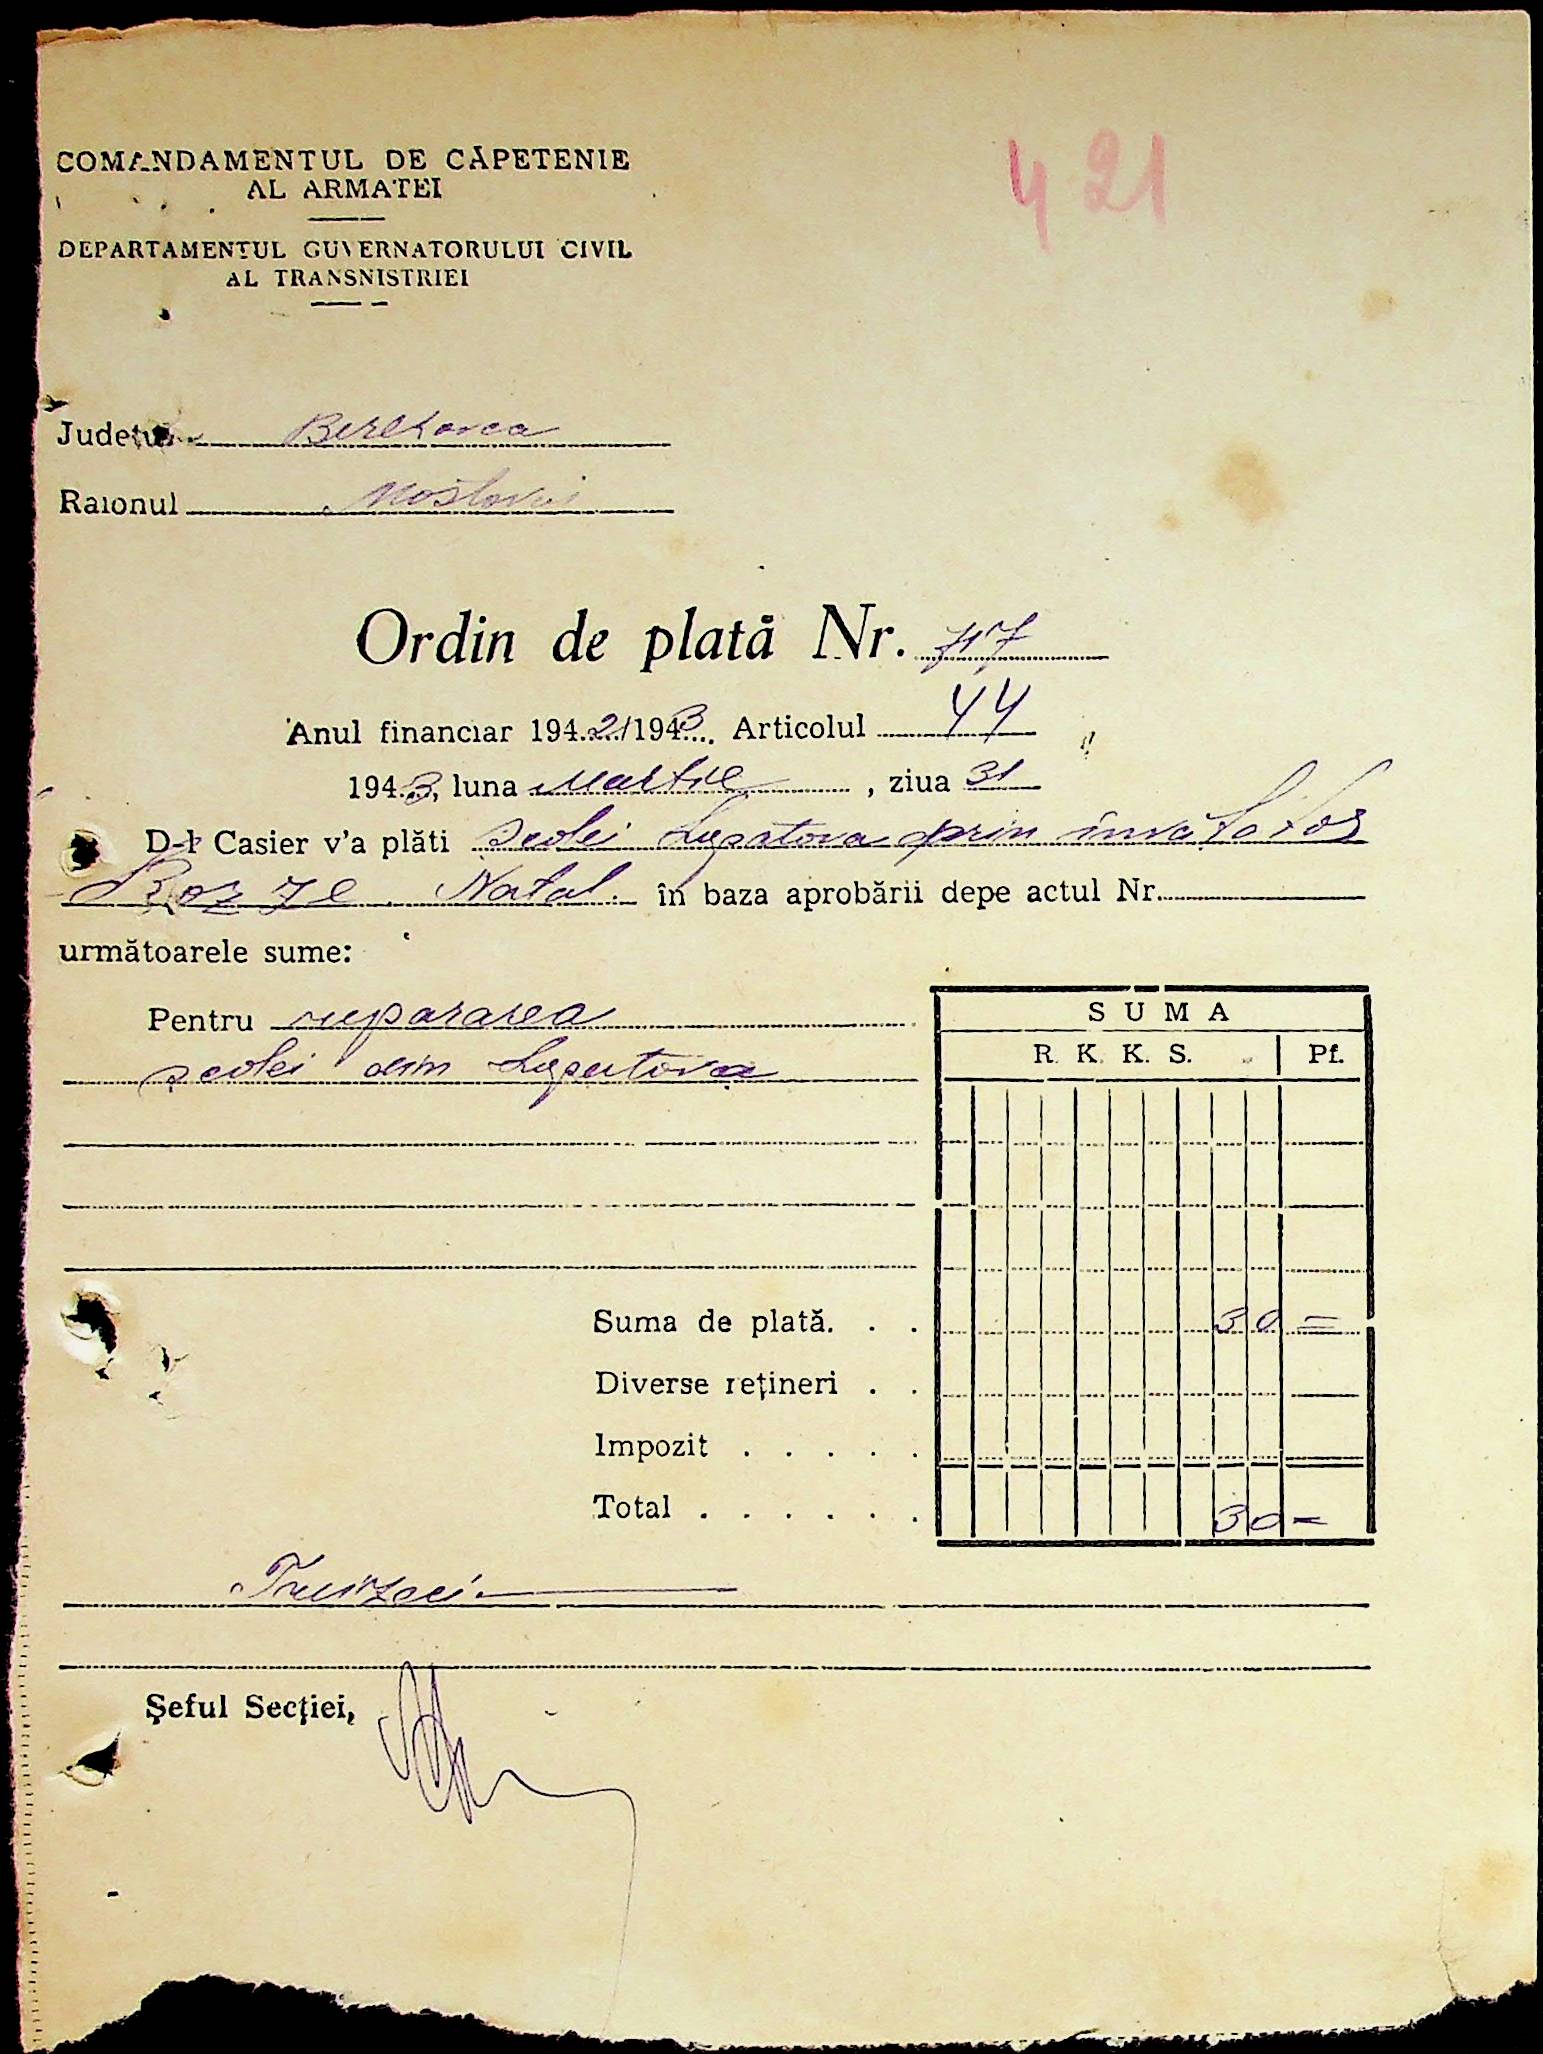 421
COMANDAMENTUL DE CĂPETENIE
AL ARMATEI
DEPARTAMENTUL GUVERNATORULUI CIVIL
AL TRANSNISTRIEI
Județul Berezovca
Raionul Mostovoi
Ordin de plată Nr. 717
Anul financiar 1942/1943. Articolul 44
1943, luna Martie, ziua 31
D-l Casier v'a plăti școlei Lupatova prin învatator
Natal. în baza aprobării depe actul Nr.
următoarele sume:
Pentru repararea
școlei din Lupatova
SUMA
R. K. K. S. Pf.
Suma de plată. . . 30 =
Diverse rețineri . .
Impozit . . . . .
Total . . . . . . 30 -
Treizeci
Șeful Secției,